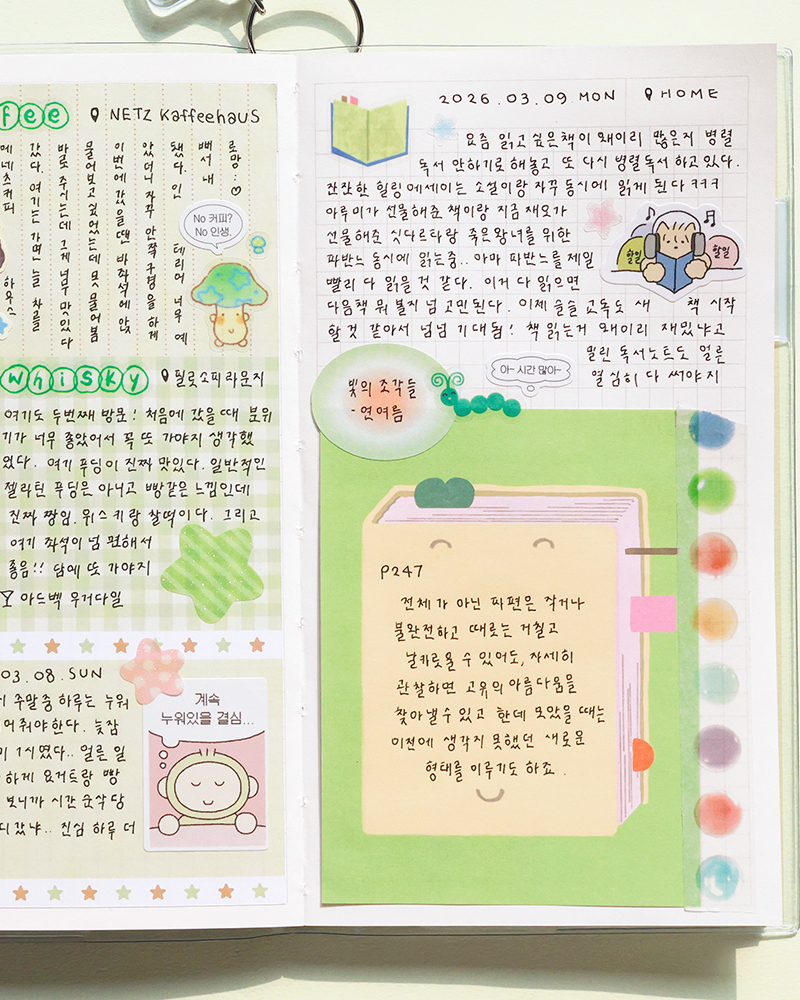 fee
NETZ Kaffeehaus
로망 : ♡
빠서 내
됐다. 인테리어 너무 예
았더니 자꾸 안쪽 구경을 하게
이번에 갔을땐 바좌석에 앉
물어보고 싶었는데 못 물어봄
바로 주시는데 그게 너무 맛있다
갔다. 여기는 가면 늘 차를
에네츠커피 하우스
No 커피?
No 인생.
Whisky
필로소피 라운지
여기도 두번째 방문! 처음에 갔을 때 분위
기가 너무 좋았어서 꼭 또 가야지 생각했
었다. 여기 푸딩이 진짜 맛있다. 일반적인
젤라틴 푸딩은 아니고 빵같은 느낌인데
진짜 짱임. 위스키랑 찰떡이다. 그리고
여기 좌석이 넘 편해서
좋음!! 담에 또 가야지
아드벡 우거다일
03.08. SUN
주말 중 하루는 누워
어줘야한다. 늦잠
1시였다.. 얼른 일
하게 요거트랑 빵
보니까 시간 순삭 당
디 갔냐.. 진심 하루 더
계속
누워있을 결심...
2026.03.09. MON HOME
요즘 읽고 싶은 책이 왜이리 많은지 병렬
독서 안하기로 해놓고 또 다시 병렬독서 하고 있다.
잔잔한 힐링 에세이는 소설이랑 자꾸 동시에 읽게 된다 ㅋㅋㅋ
아루미가 선물해준 책이랑 지금 재오가
선물해준 싯다르타랑 죽은 왕녀를 위한
파반느 동시에 읽는중.. 아마 파반느를 제일
빨리 다 읽을 것 같다. 이거 다 읽으면
다음책 뭐 볼지 넘 고민된다. 이제 슬슬 고독도 새 책 시작
할 것 같아서 넘넘 기대됨! 책 읽는거 왜이리 재밌냐고
밀린 독서노트도 얼른
열심히 다 써야지
할일
할일
빛의 조각들
- 연여름
아- 시간 많아~
P247
전체가 아닌 파편은 작거나
불완전하고 때로는 거칠고
날카로울 수 있어도, 자세히
관찰하면 고유의 아름다움을
찾아낼 수 있고 한데 모았을 때는
이전에 생각지 못했던 새로운
형태를 이루기도 하죠.